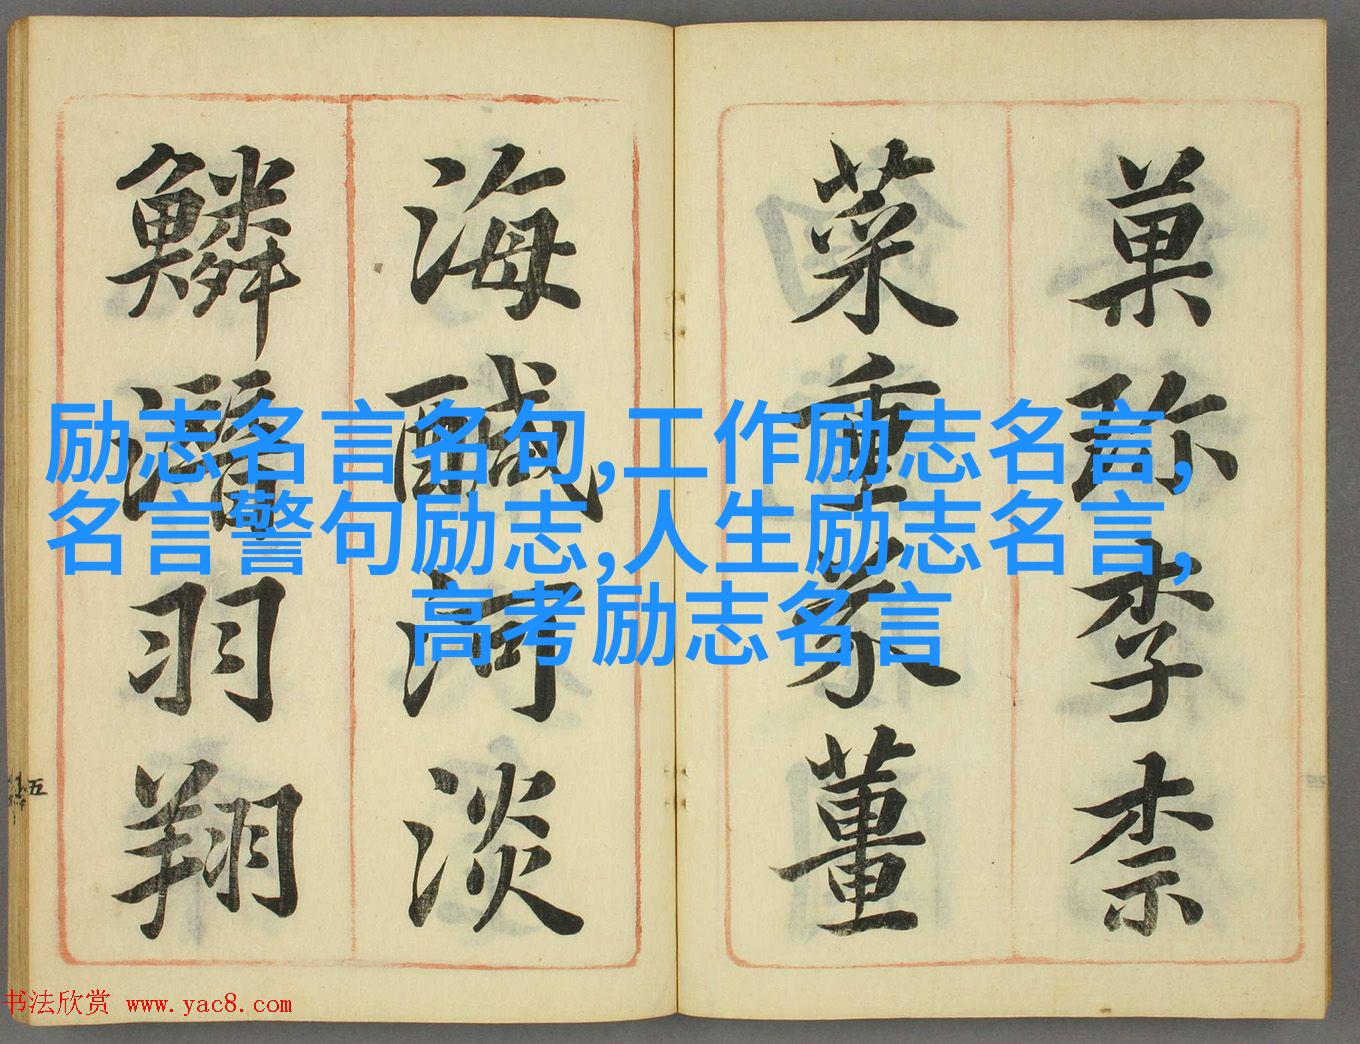 菓珎李柰
菜重芥薑
海醎河淡
鱗潛羽翔
励志名言名句,工作励志名言,
名言警句励志,人生励志名言,
高考励志名言
五
书法欣赏 www.yac8.com